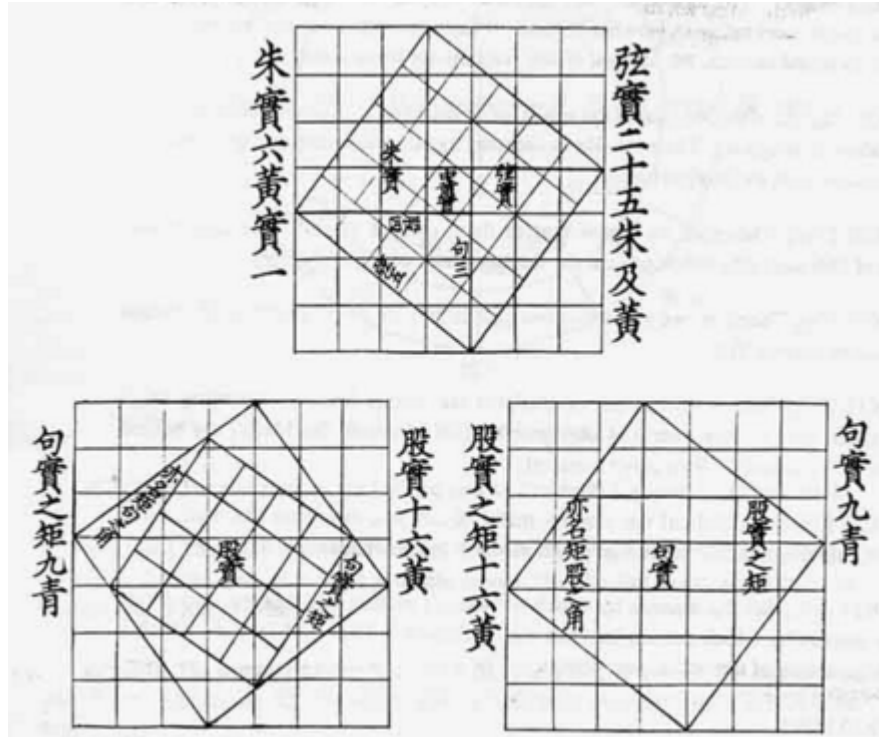 弦實二十五朱及黃
朱實六黃實一
朱實
中黃實
弦實
股四
句三
弦五
句實九青
股實之矩十六黃
股實之矩
句實
亦名矩股之角
股實十六黃
句實之矩九青
股實
句實之矩